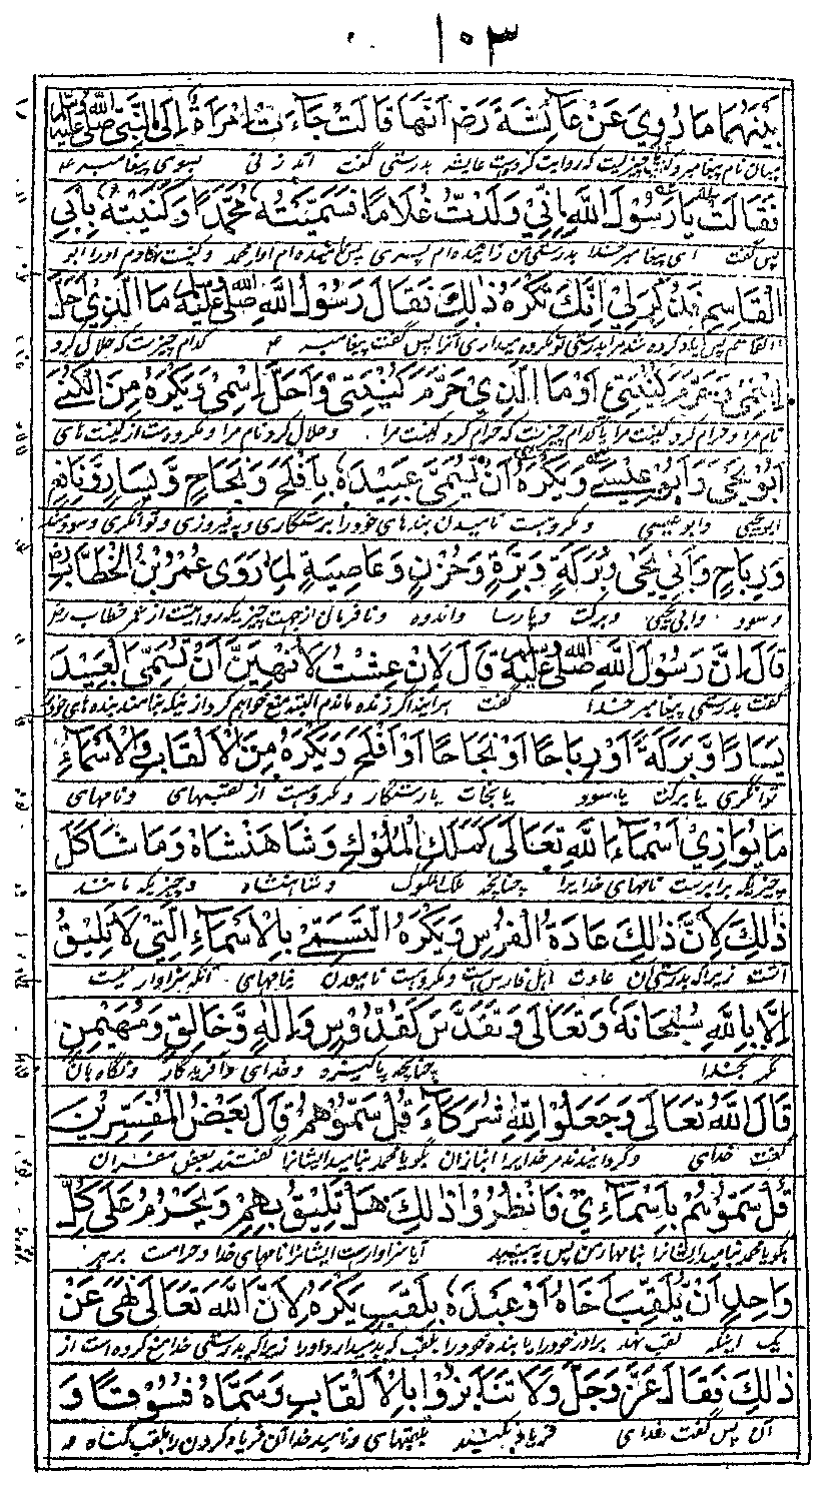 ١٠٣
بَيْنَهُمَا مَا رُوِيَ عَنْ عَآئِشَةَ رَضِ اَنَّهَا قَالَتْ جَاءَتْ اِمْرَاَةٌ اِلَى النَّبِيِّ صَلَّى اللّٰهُ عَلَيْهِ وَسَلَّمَ
روایت کرده عایشه بدرستی گفت آمد زنی بسوی پیغامبر
فَقَالَتْ يَا رَسُوْلَ اللّٰهِ اِنِّيْ وَلَدْتُّ غُلَامًا فَسَمَّيْتُهٗ مُحَمَّدًا وَكَنَّيْتُهٗ بِاَبِي
پس گفت ای پیغامبر خدا بدرستی من زائیده ام پسری پس نامیده ام او را محمد و کنیت نهادم او را ابو
الْقَاسِمِ فَذُكِرَ لِيْ اِنَّكَ تَكْرَهُ ذٰلِكَ فَقَالَ رَسُوْلُ اللّٰهِ صَلَّى اللّٰهُ عَلَيْهِ وَسَلَّمَ مَا الَّذِيْ اَحَلَّ
القاسم پس یاد کرده شد مرا بدرستی تو مکروه میداری آنرا پس گفت پیغامبر کدام چیزست که حلال کرد
اِسْمِيْ وَحَرَّمَ كُنْيَتِيْ اَوْ مَا الَّذِيْ حَرَّمَ كُنْيَتِيْ وَاَحَلَّ اِسْمِيْ وَيَكْرَهُ مِنَ الْكُنٰى
نام مرا و حرام کرد کنیت مرا یا کدام چیزست که حرام کرد کنیت مرا و حلال کرد نام مرا و مکروه ست از کنیت های
اَبُوْ يَحْيٰى وَاَبُوْ عِيْسٰى وَيَكْرَهُ اَنْ يُّسَمّٰى عَبِيْدَهٗ بِاَفْلَحَ وَنَجَاحٍ وَّيَسَارٍ وَّنَافِعٍ
ابو یحیی و ابو عیسی و مکروهست نامیدن بنده های خود را برستگاری و به فیروزی و توانگری و سودمند
وَرِبَاحٍ وَاَبِيْ يَحْيٰى وَبَرَكَةٍ وَبَرَّةٍ وَحُزْنٍ وَعَاصِيَةٍ لِمَا رَوٰى عُمَرُ بْنُ الْخَطَّابِ رَضِ
و سود و ابی یحیی و برکت و پارسا و اندوه و نافرمانی از جهت چیزیکه روایتست از عمر خطاب رض
قَالَ اِنَّ رَسُوْلَ اللّٰهِ صَلَّى اللّٰهُ عَلَيْهِ وَسَلَّمَ قَالَ لَاِنْ عِشْتُ لَاَنْهَيَنَّ اَنْ تُسَمّٰى الْعَبِيْدَ
گفت بدرستی پیغامبر خدا گفت هر آینه اگر زنده ماندم البته منع خواهم کرد از نیکه بنامند بنده های خود
يَسَارًا وَّبَرَكَةً اَوْ رِبَاحًا اَوْ نَجَاحًا اَوْ اَفْلَحَ وَيَكْرَهُ مِنَ الْاَلْقَابِ وَالْاَسْمَآءِ
توانگری یا برکت یا سود یا نجات یا رستگار و مکروهست از لقبهای و نامهای
مَا يُوَازِيْ اَسْمَآءَ اللّٰهِ تَعَالٰى كَمَلَكِ الْمُلُوْكِ وَشَاهَنْشَاهْ وَمَا شَاكَلَ
چیزیکه برابرست نامهای خدایرا چنانچه ملک الملوک و شاهنشاه و چیزیکه مانند
ذٰلِكَ لِاَنَّ ذٰلِكَ عَادَةُ الْفُرْسِ وَيَكْرَهُ التَّسَمِّيْ بِالْاَسْمَآءِ الَّتِيْ لَا تَلِيْقُ
آنست زیراکه بدرستی آن عادت اهل فارس است و مکروهست نامیدن بنامهای آنکه سزاوار نیست
اِلَّا بِاللّٰهِ سُبْحَانَهٗ وَتَعَالٰى وَتَقَدَّسَ كَقُدُّوْسٍ وَاِلٰهٍ وَّخَالِقٍ وَمُهَيْمِنٍ
مگر بخدا چنانچه پاکیزه و خدای و آفریدگار و نگاه بان
قَالَ اللّٰهُ تَعَالٰى وَجَعَلُوْا لِلّٰهِ شُرَكَآءَ قُلْ سَمُّوْهُمْ قَالَ بَعْضُ الْمُفَسِّرِيْنَ
گفت خدای و گردانیدند مر خدایرا انبازان بگو یا محمد بنامید ایشانرا گفتند بعض مفسران
قُلْ سَمُّوْهُمْ بِاَسْمَآءِيْ فَانْظُرُوْا ذٰلِكَ هَلْ تَلِيْقُ بِهِمْ وَيَحْرُمُ عَلٰى كُلِّ
بگو یا محمد بنامید ایشانرا بنامهای من پس ببینید آیا سزاوارست ایشانرا نامهای خدا و حرامست بر هر
وَاحِدٍ اَنْ يُّلَقِّبَ اَخَاهُ اَوْ عَبْدَهٗ بِلَقَبٍ يَكْرَهُ لِاَنَّ اللّٰهَ تَعَالٰى نَهٰى عَنْ
یک اینکه لقب نهد برادر خود را یا بنده خود را بلقب که بد میدارد او را زیرا که بدرستی خدا منع کرده است از
ذٰلِكَ فَقَالَ عَزَّ وَجَلَّ وَلَا تَنَابَزُوْا بِالْاَلْقَابِ وَسَمَّاهُ فُسُوْقًا وَ
آن پس گفت خدای بلقبهای و نامید خدا آن فریاد کردن را بلقب گناه و